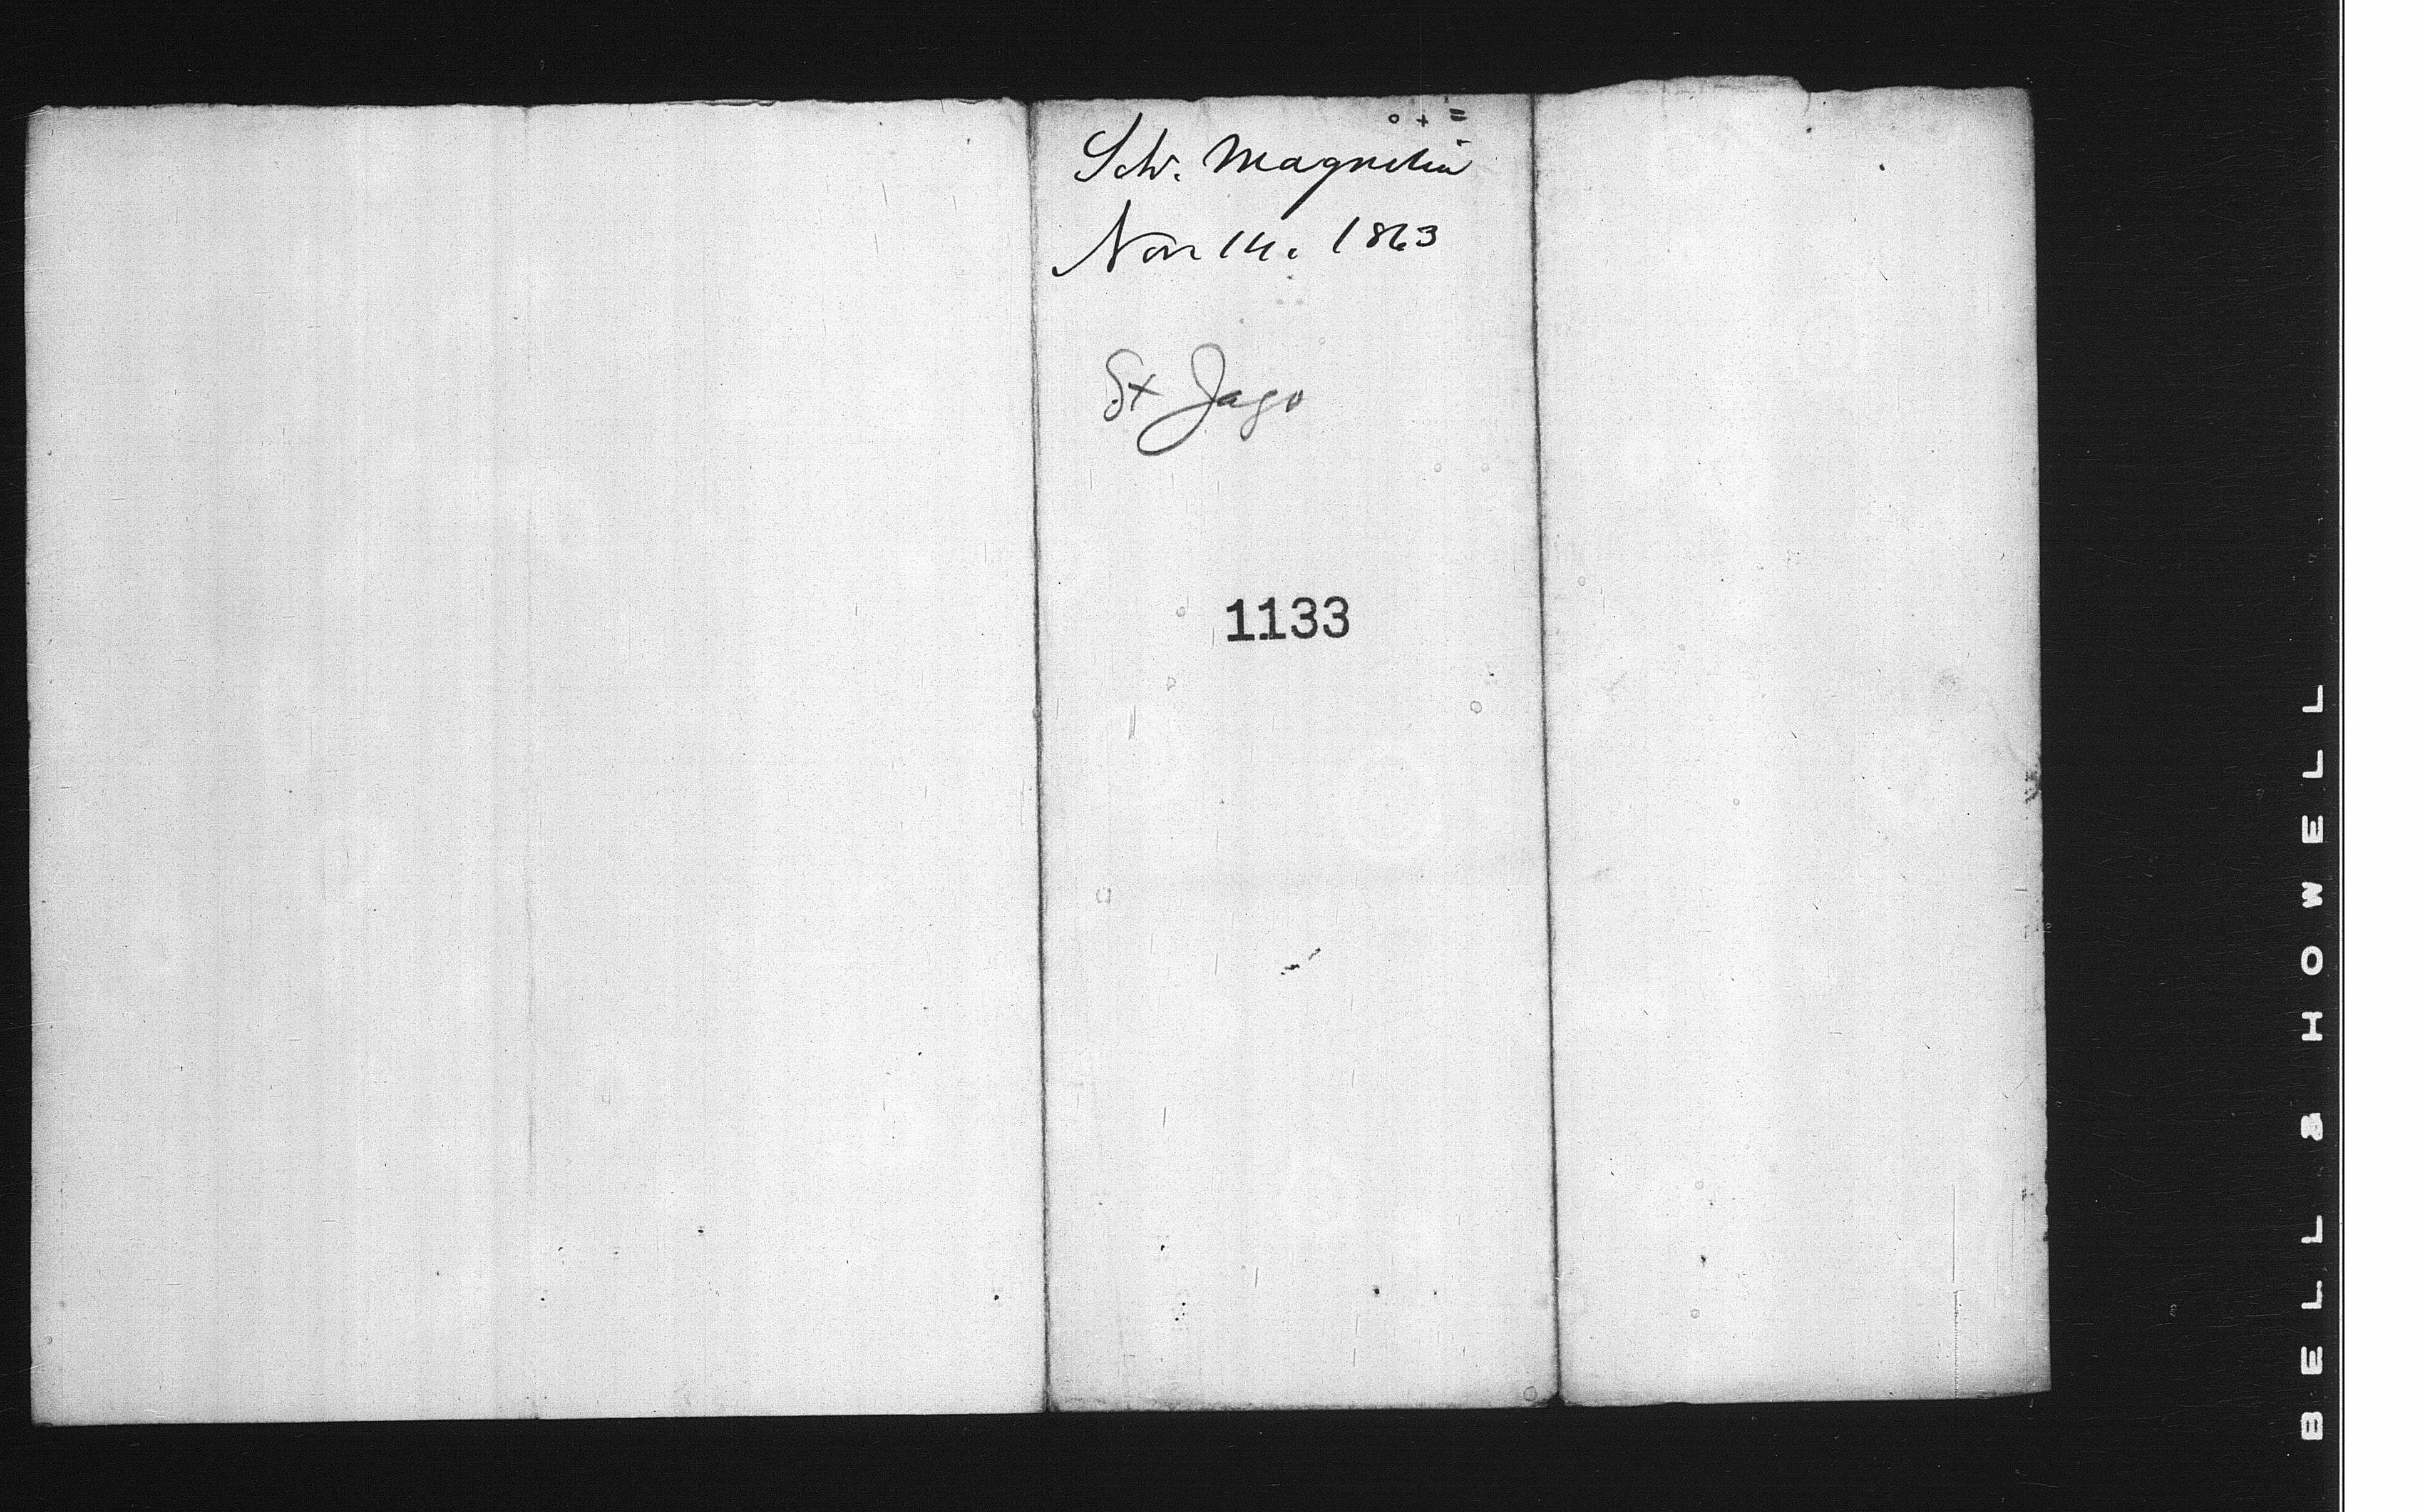 Sch. Magnolia
Nov 14. 1863
St Jago
1133
BELL & HOWELL